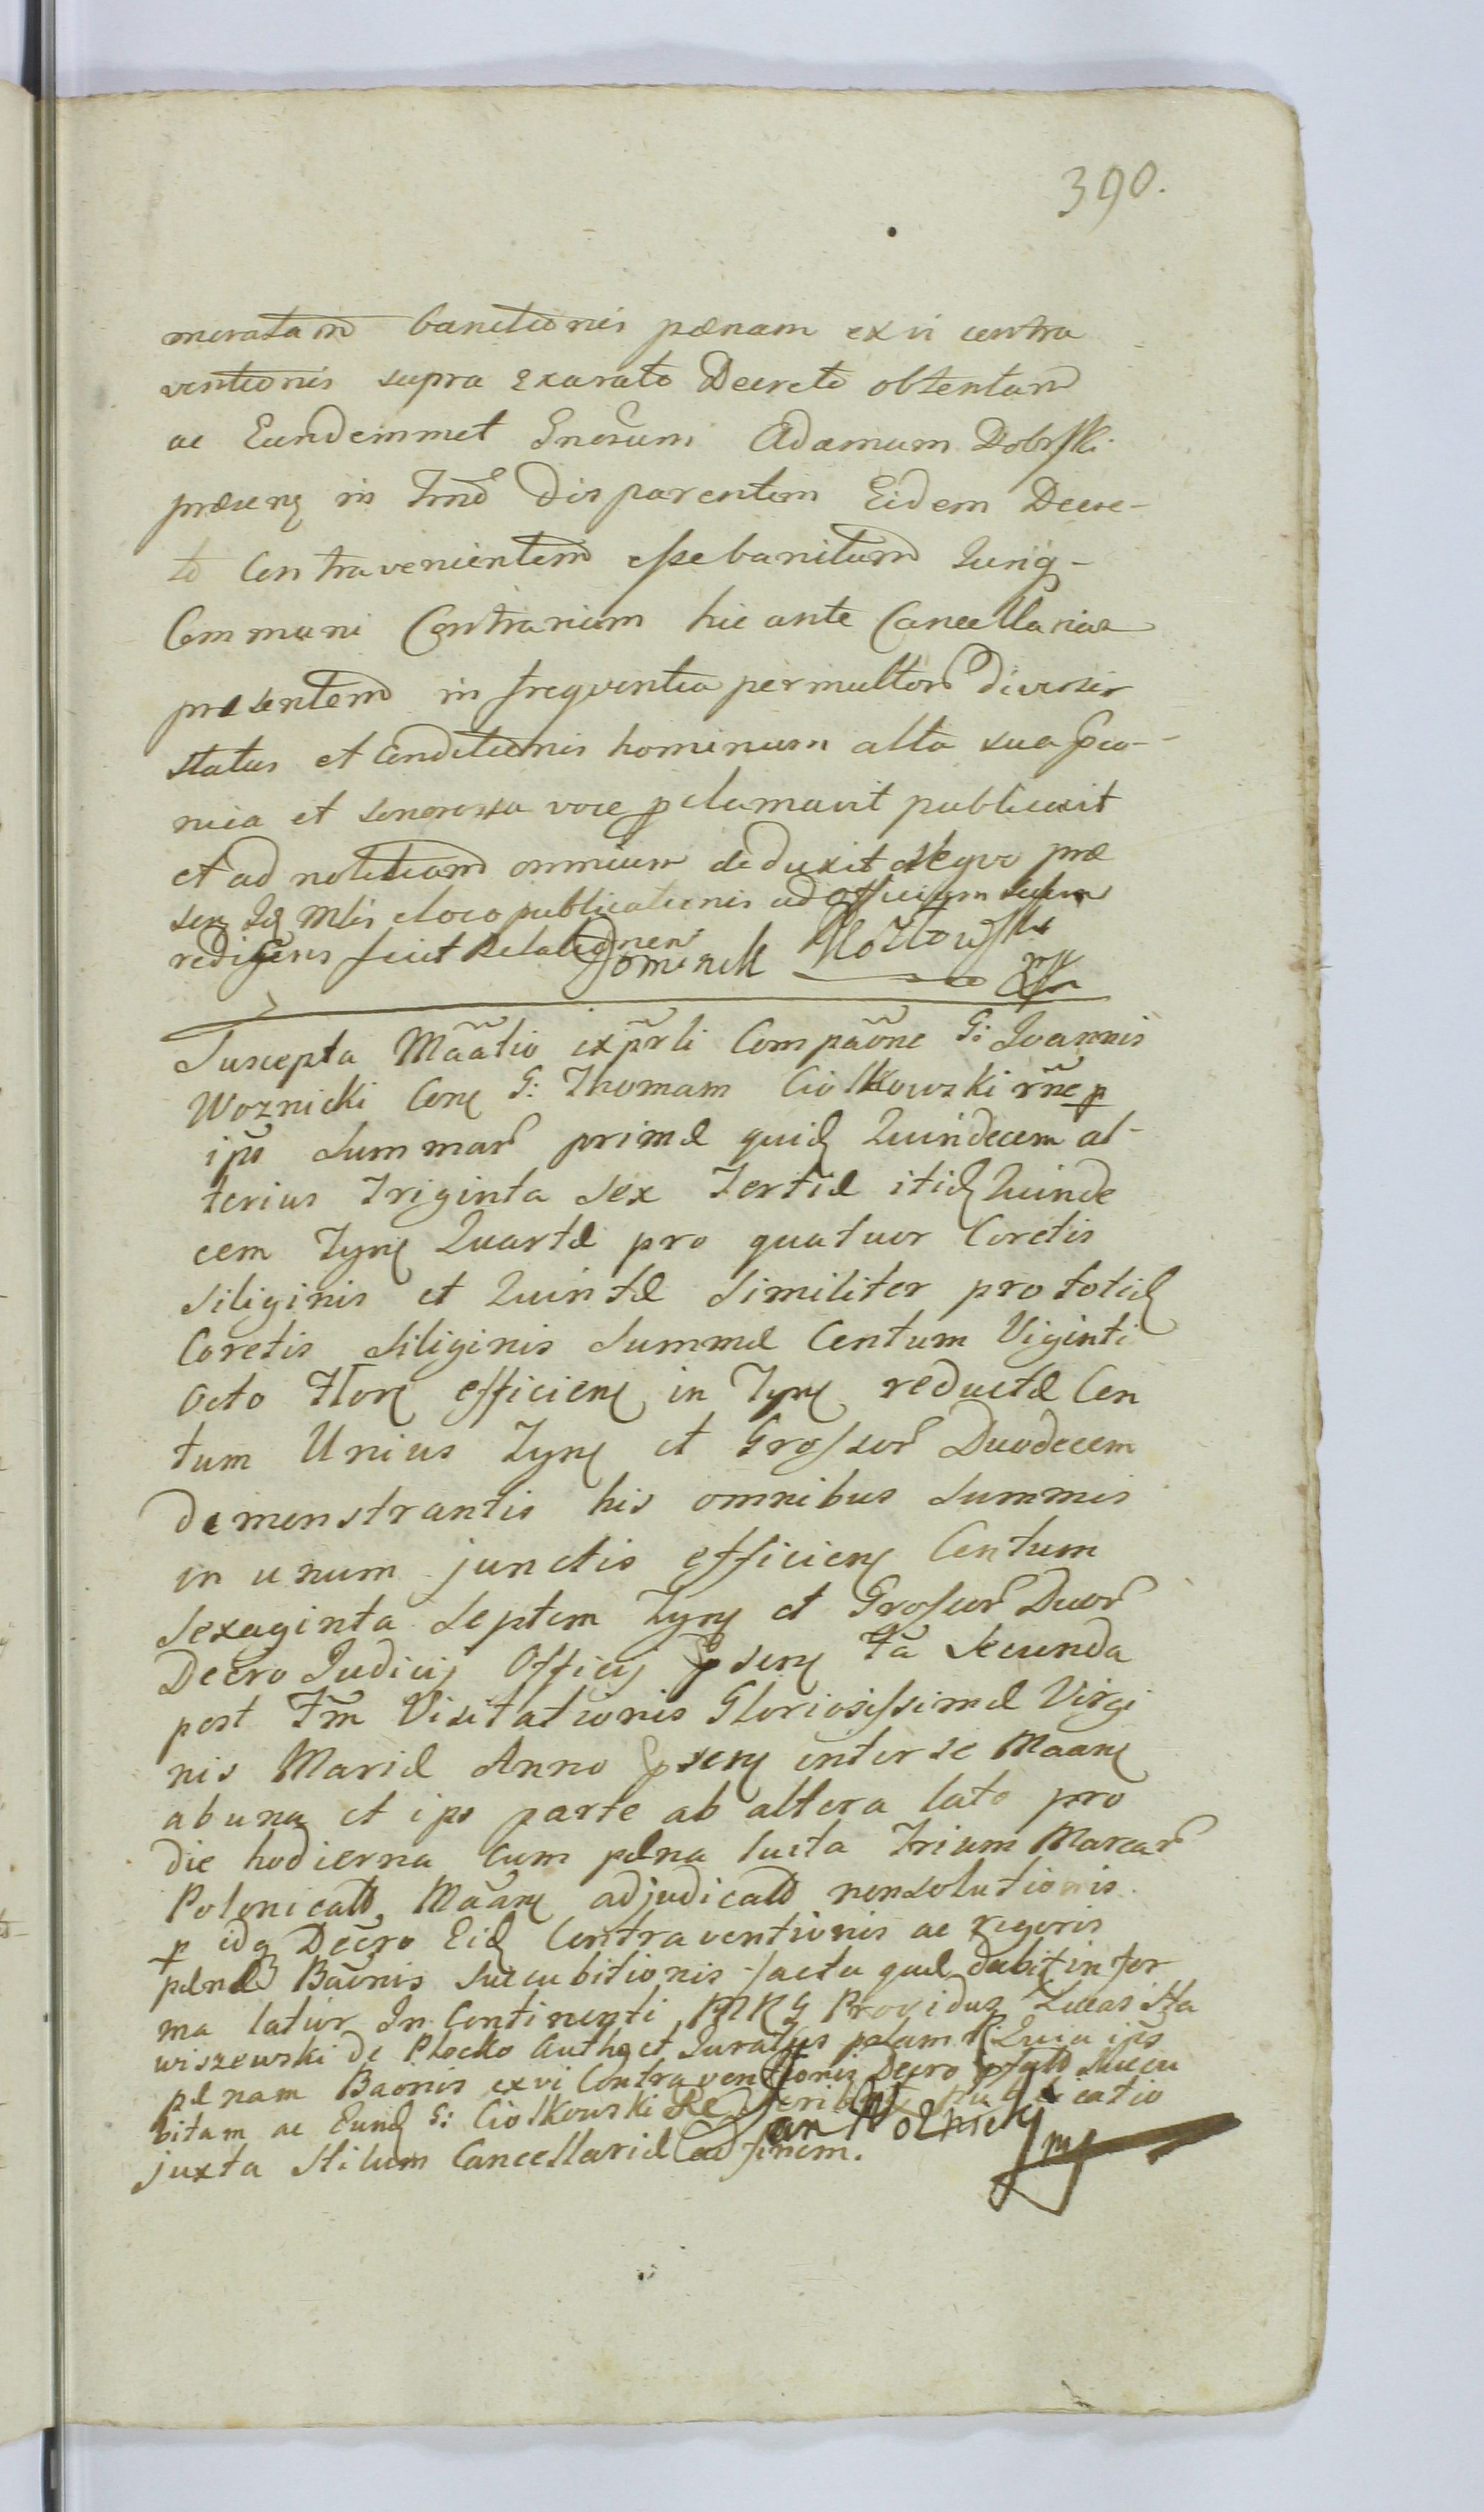 390.
moratam banitionis pœnam ex vi contra
ventionis supra exarato Decreto obtentam
ac Eundemmet Gnosum Adamum Dobrski
præsenẽ in Tmõ disparentem Eidem Decre-
to Contravenientem esse banitum Jurig-
Communi Contrarium hic ante Cancellariam
præsentem in freqventia permultorũ diversis
status et Conditionis hominum alta sua
nica et sonorosa voce pclamavit publicavit
et ad notitiam omnium deduxit deqvo præ
sen Idẽ Mlis eloco publicationis ad officium
rediens fecit Relationem
Dominik Kozłowski
Suscepta Mãatio ix pãrli Compãone G: Joannis
Woznicki Conẽ G: Thomam Ciołkowski rñe p
ipõ Summarũ primæ quidẽ Quindecem al-
terius Triginta Sex Tertiæ itidẽ Quinde
cem Tynẽ Quartæ pro quatuor Coretis
Siliginis et Quintæ Similiter pro totidẽ
Coretis Siliginis Summæ Centum Viginti
Octo Florẽ efficienẽ in Tynẽ reductæ Cen
tum Unius Tynẽ et Grossorũ Duodecem
demonstrantis his omnibus Summis
in unum junctis efficienẽ Centum
Sexaginta Septem Tynẽ et Grossorũ Duorũ
Decro Judicij Officij psenẽ fã Secunda
post Fm̃ Visitationis Gloriosissimæ Virgi
nis Mariæ Anno psenẽ inter se Maanẽ
ab una et ipõ parte ab altera lato pro
die hodierna Cum pœna lucta Trium Marcarũ
Polonicalib, Mãanẽ adjudicato nonsolutionis
p idq Decro Eidẽ Contraventionis ac rigoris
pœnæ Baõnis Succubitionis facta quæ dabit in for
ma latior In Continenti MRG Providus Lucas Sta
wiszewski de Plocko Auth et Juratus palam R Quia ipõ
pœnam Baonis ex vi Contraventionis Decro Succu
bitam ac Eundẽ G: Ciołkowski Publicatio
juxta Stilum Cancellariæ ad finem.
Jan Woznicki mp